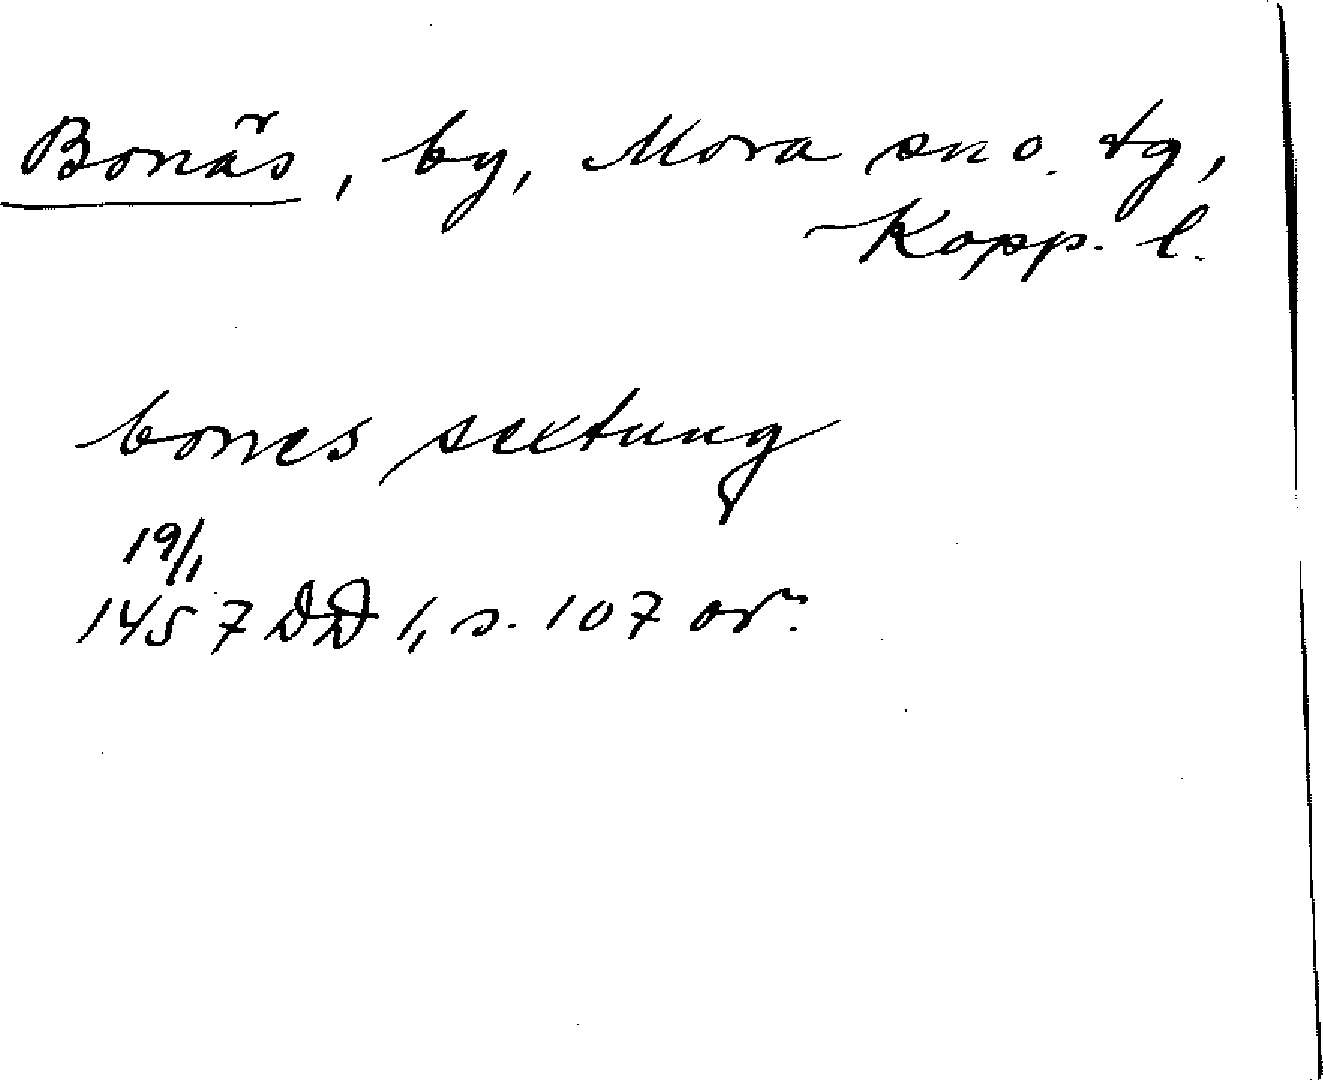 Bonäs, by, Mora sn o. tg,
Kopp. l.
bones settung
19/1
1457 DD 1, s. 107 or.